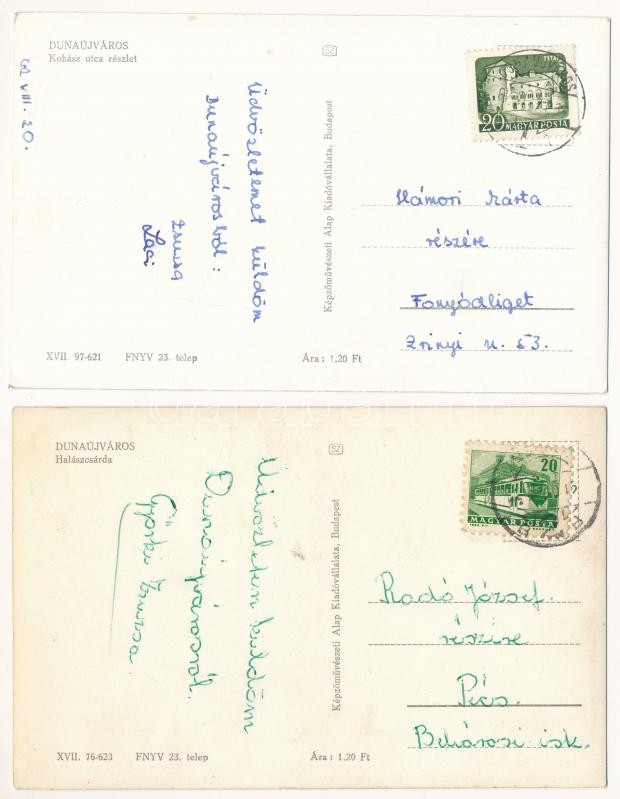 DUNAÚJVÁROS
Kohász utca részlet
62 VIII. 20.
Üdvözletemet küldöm
Dunaújvárosból:
Zsuzsa
Laci
SZ
Képzőművészeti Alap Kiadóvállalata, Budapest
20 MAGYAR POSTA
Hámori Márta
részére
Fonyódliget
Zrinyi u. 53.
XVII. 97-621 FNYV 23. telep Ára: 1,20 Ft
DUNAÚJVÁROS
Halászcsárda
Üdvözletem küldöm
Dunaújvárosból.
Györki Zsuzsa.
SZ
Képzőművészeti Alap Kiadóvállalata, Budapest
20
MAGYAR POSTA
Radó József.
részére
Pécs.
Belvárosi isk.
XVII. 76-623 FNYV 23. telep Ára: 1.20 Ft